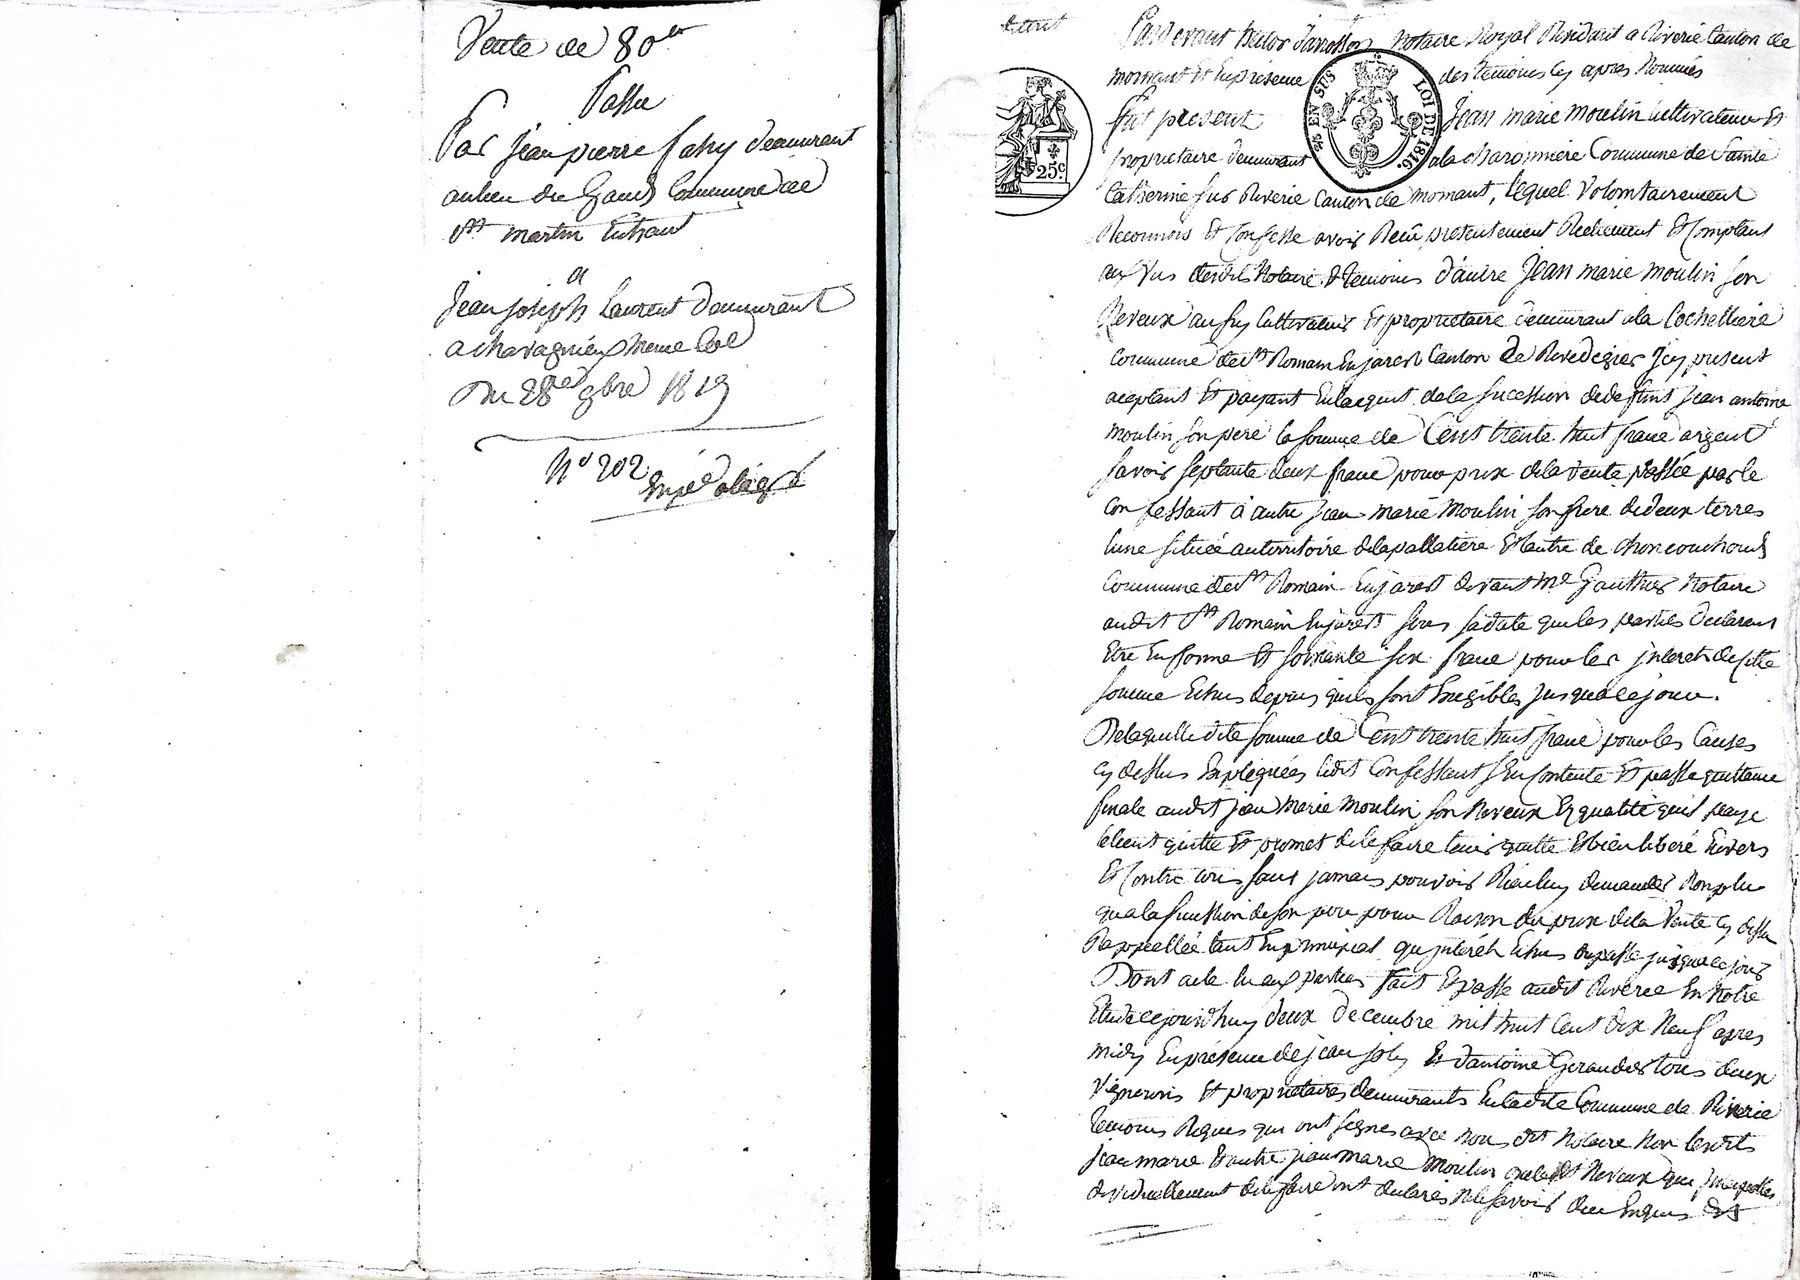 Vente de 80 lt
Passée
Par Jean pierre demeurant
au lieu du Commune de
st martin
a
Jean joseph Laurent demeurant
a chavagnieu même Com
Du 28 9bre 1819
N° 202
Pardevant hector notaire Royal Residant a Riverie Canton de
mornant Et En présence des temoins Cy apres Nommés
Fut present Jean marie Moulin Cultivateur Et
proprietaire demeurant a la charonnière Commune de Sainte
Catherine sur Riverie Canton de mornant, lequel Volontairement
Reconnois Et Confesse avoir Reçu présentement Réelement Et Comptant
aux Vus desdits Notaire & temoins d'autre Jean marie moulin son
Neveux aussy Cultivateur Et proprietaire demeurant a la Cochettiere
Commune de st Romain En jarest Canton de Rivedegier Jcy present
aceptant Et payant En lacquit de la sucession de defunt jean antoine
moulin son pere la somme de Cent trente huit franc argent
savoir septante deux franc pour prix de la vente passée par le
Confessant à autre jean marie Moulin son frere de deux terres
lune située au territoire de la pallatiere Et lautre de
Commune de st Romain En jarest devant Me Gauthier Notaire
audit st Romain En jarest sous sa date que les parties declarent
Etre En forme Et soixante six franc pour les jnterets de cette
somme Echus depuis quils sont Exigibles jusqua ce jour.
De laquelle dite somme de Cent trente huit franc pour les Causes
Cy dessus Expliquées ledit Confessant s'En Contente Et passe quittance
finale audit jean Marie Moulin son Neveux En qualité quil
le tient quitte Et promet de le faire tenir quitte Et bien libéré Envers
Et Contre tous sans jamais pouvoir Rien luy demander Non plus
qua la sucession de son pere pour Raison du prix de la Vente Cy dessus
Rappellée tant En principal qu'jnterêts Echus jusqua ce jour
Dont acte lu aux parties fait Et passé audit Riverie En Notre
Etude ce jourd'huy deux decembre mil huit Cent dix Neuf apres
midy En présence de jean joly Et d'antoine tous deux
Vignerons Et proprietaires demeurants En ladite Commune de Riverie
temoins Requis qui ont signés avec nous dit Notaire Non lesdits
jean marie Et autre jean marie Moulin Neveux qui
de le faire ont declarés ne le savoir de ce Enquis
25c
EN SUS LOI DE 1816.